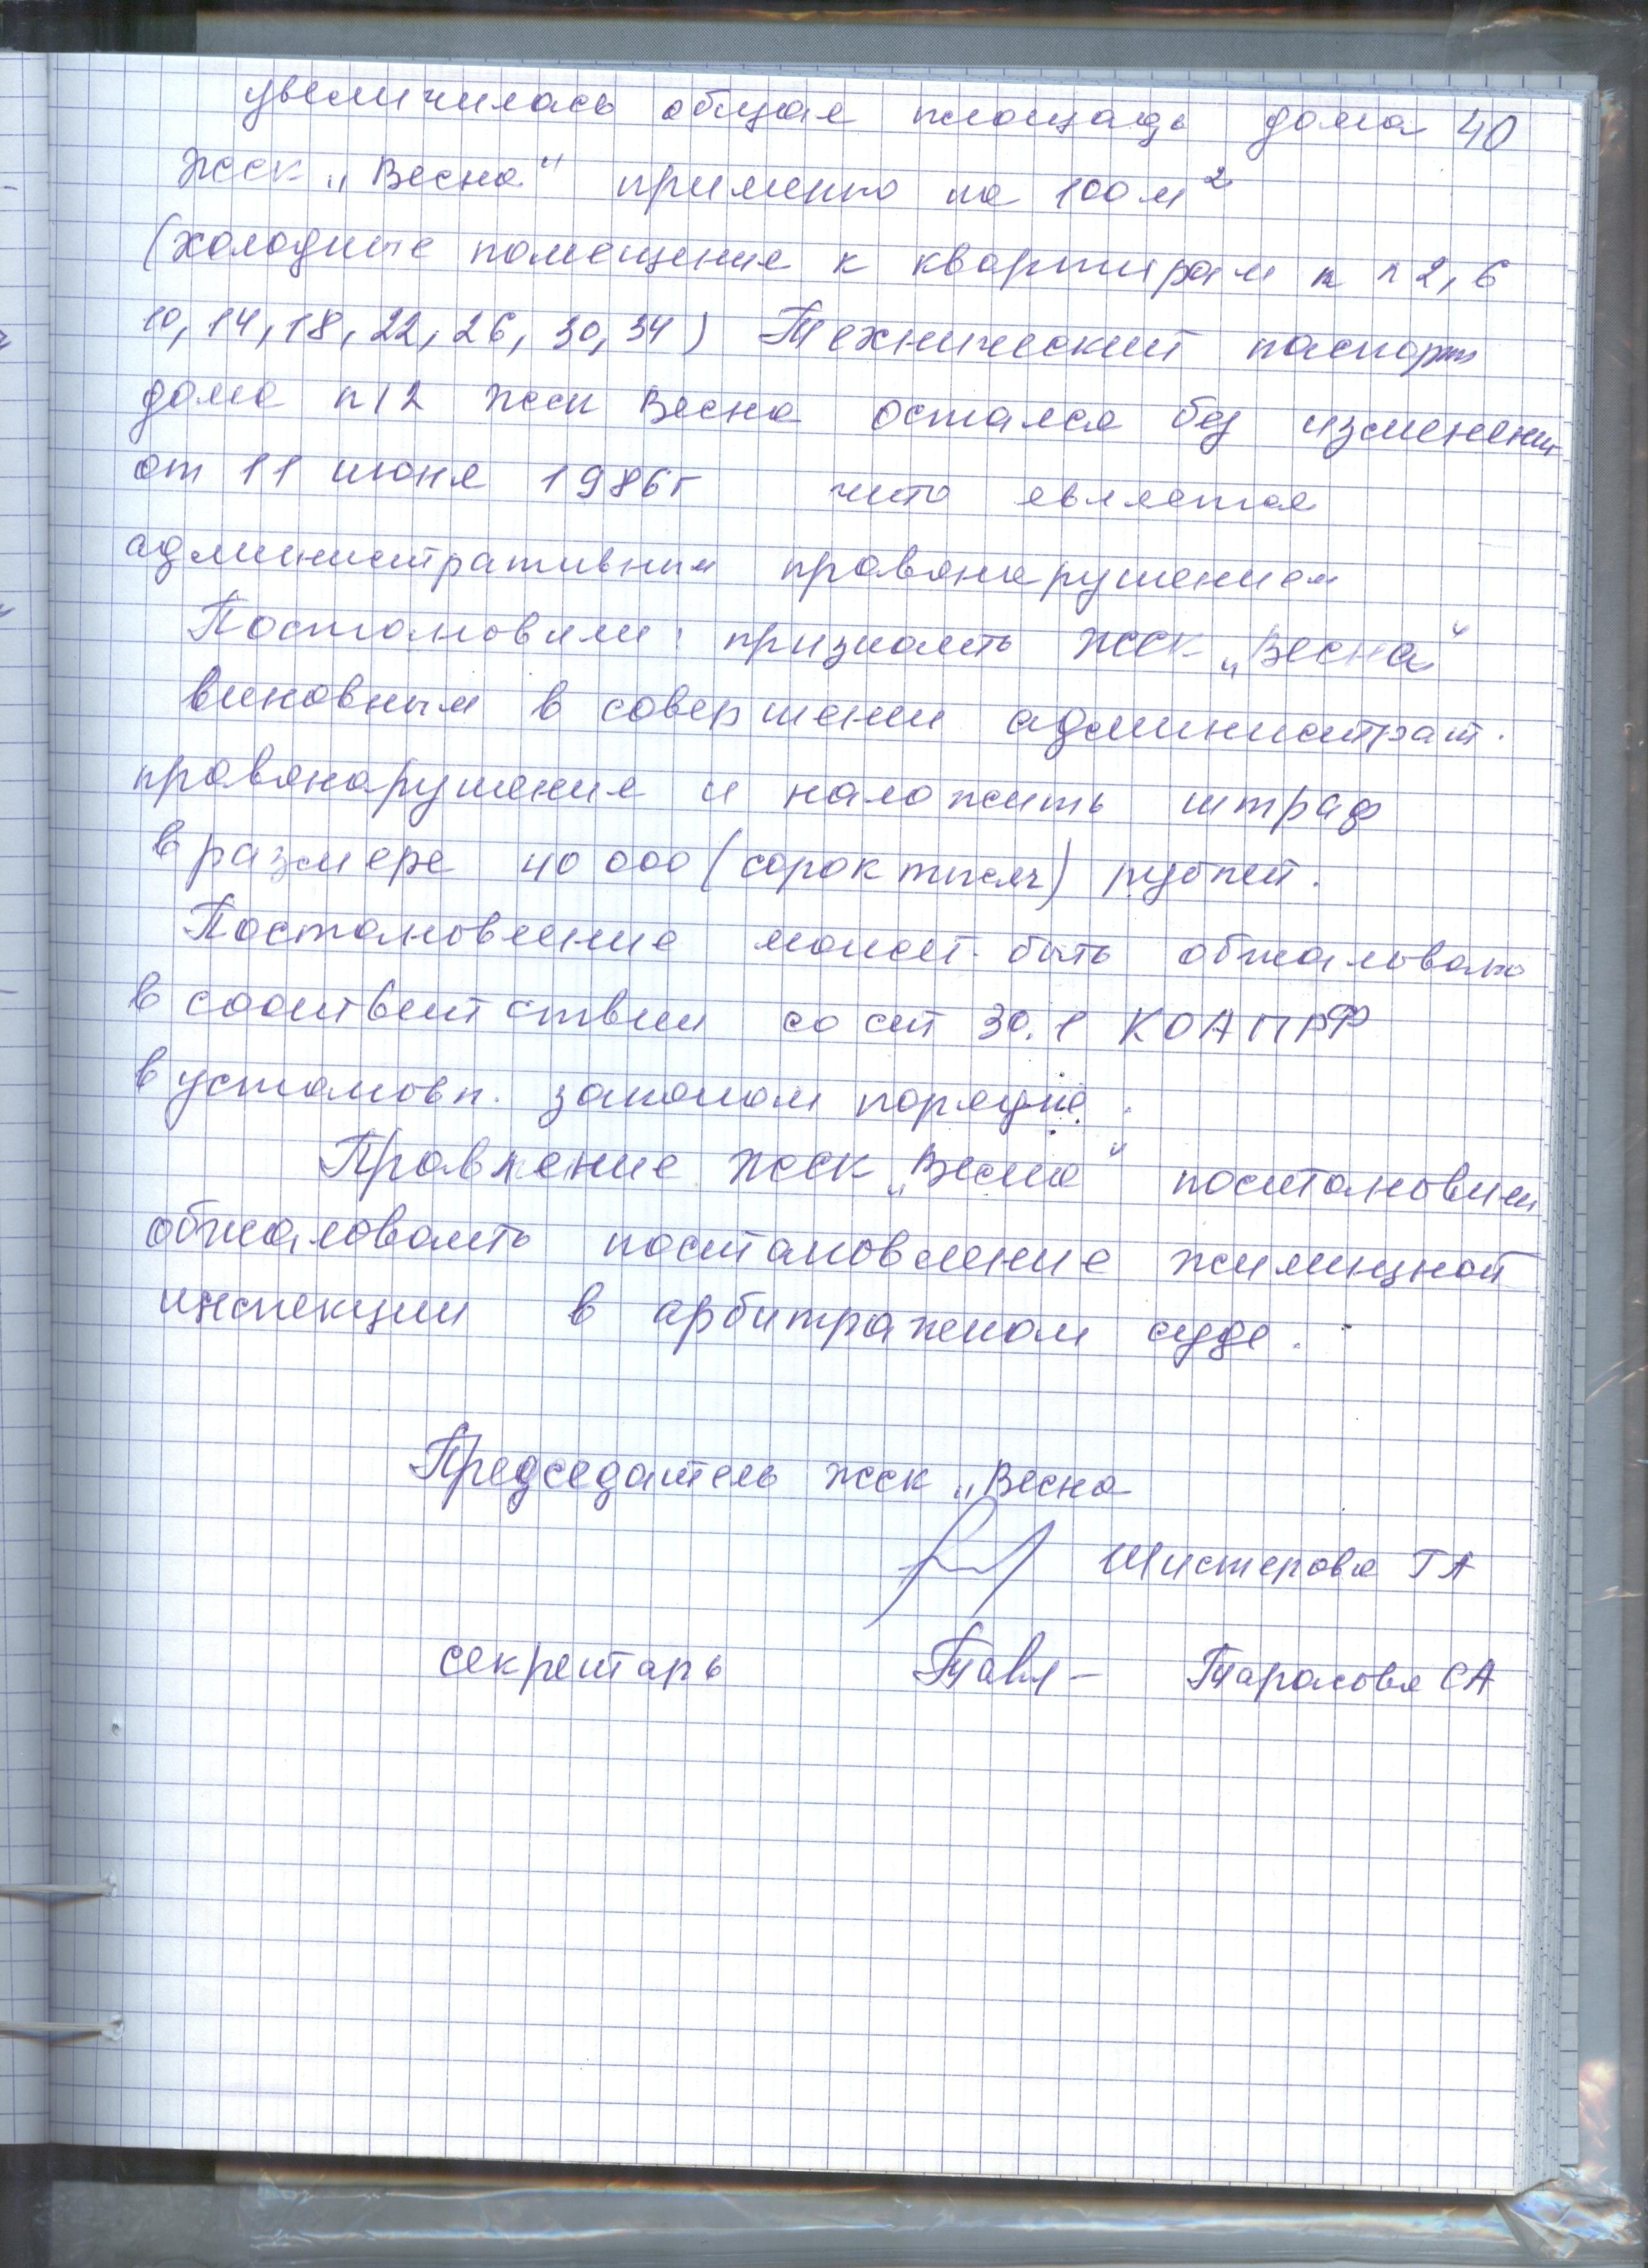 увеличилась общая площадь дома 40
ЖСК „Весна" примерно на 100 м²
(холодные помещение к квартирам n n 2, 6
10, 14, 18, 22, 26, 30, 34) Технический паспорт
дома n 12 ЖСК Весна остался без изменении
от 11 июня 1986г что является
административным правонарушением
Постановили: признать ЖСК „Весна"
виновным в совершении администрат.
правонарушение и наложить штраф
в размере 40 000 (сорок тысяч) рублей.
Постановление может быть обжаловано
в соответствии со ст 30.1 КОАП РФ
в установл. законом порядке.
Правление ЖСК „Весна" постановили
обжаловать постановление жилищной
инспекции в арбитражном суде.
Председатель ЖСК „Весна
Шистерова ГА
секретарь Тарасова СА